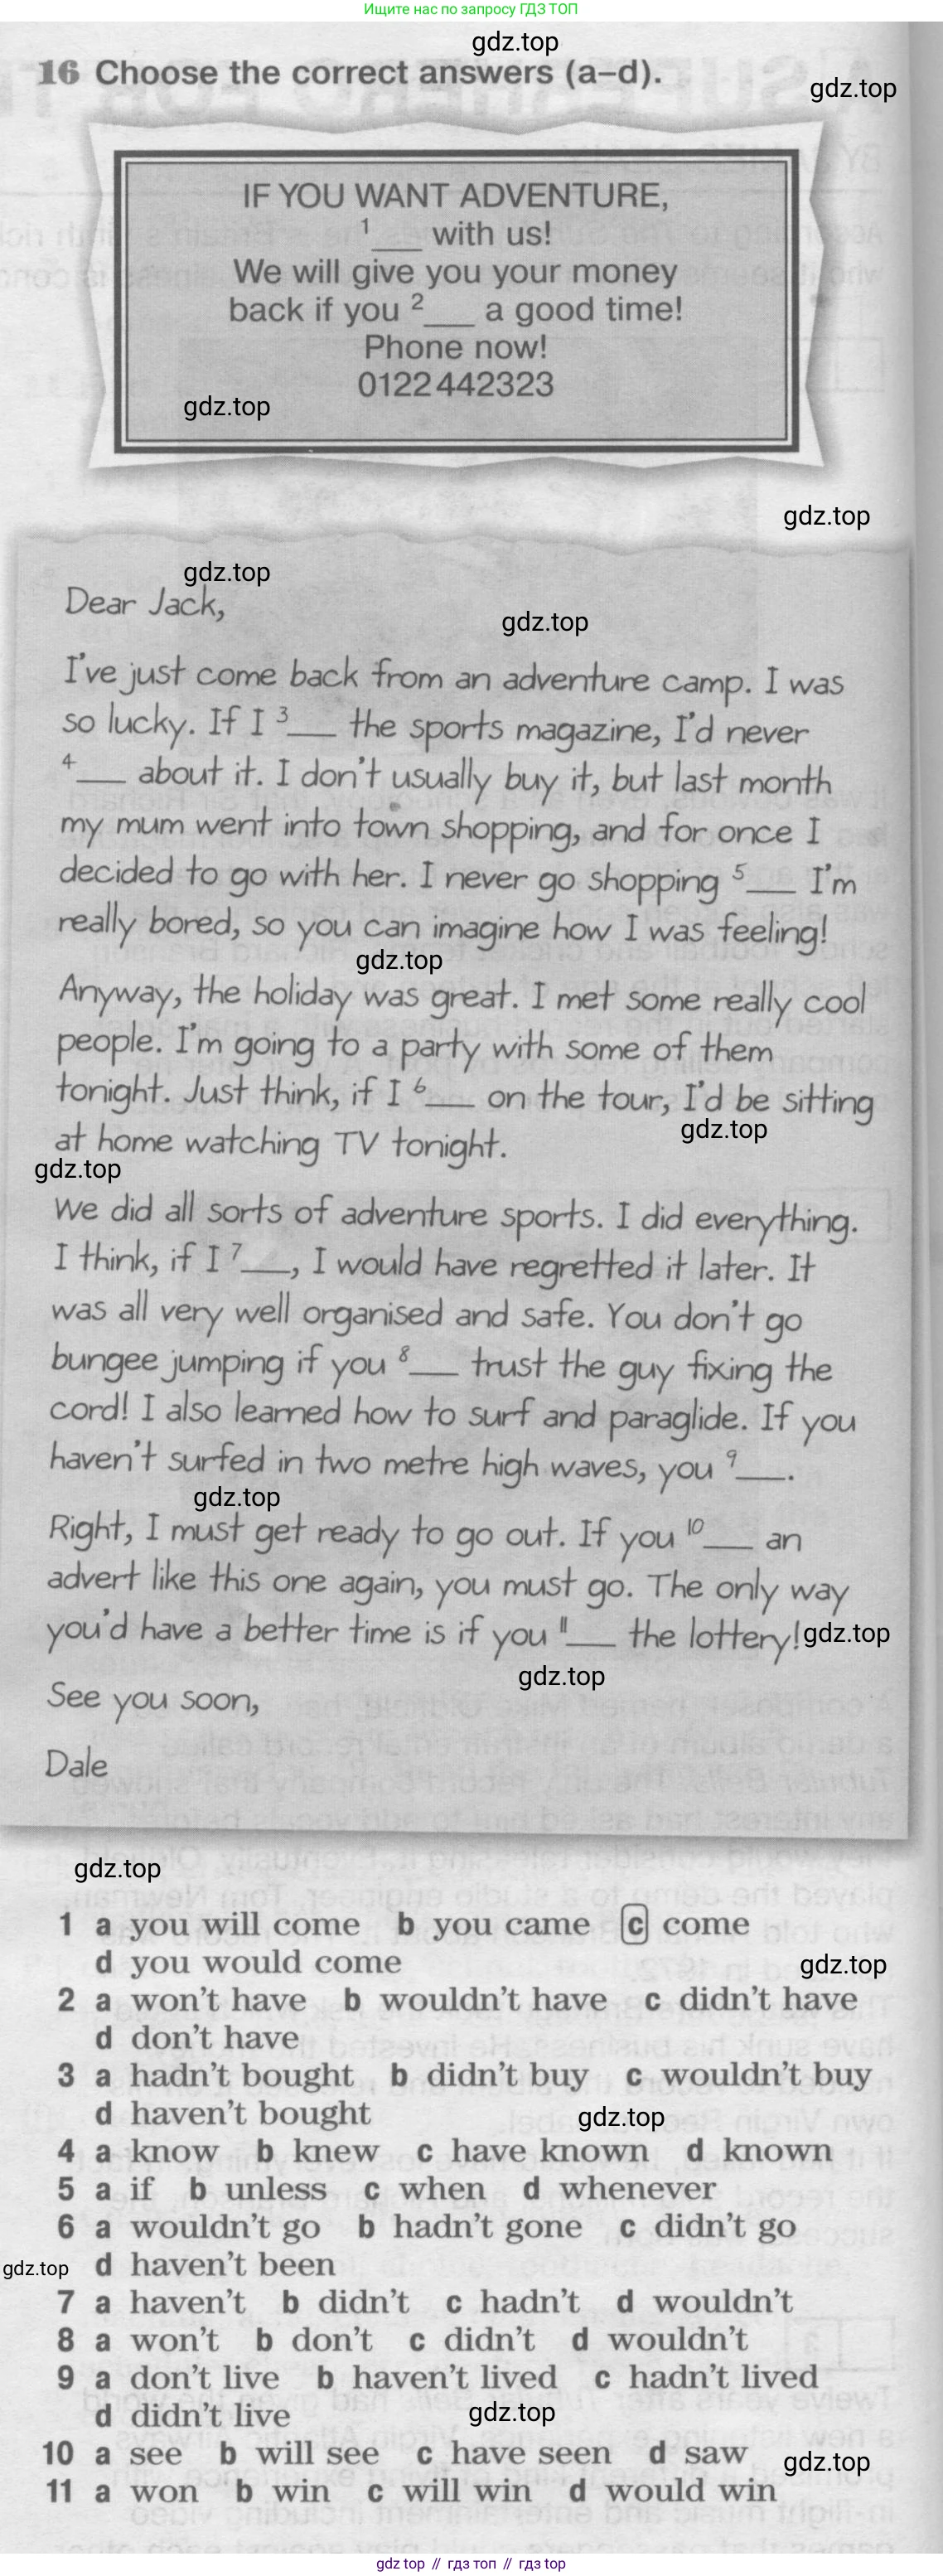 Ищите нас по запросу ГДЗ ТОП
gdz.top
16 Choose the correct answers (a–d).
gdz.top
IF YOU WANT ADVENTURE,
1___ with us!
We will give you your money
back if you 2___ a good time!
Phone now!
0122 442323
gdz.top
gdz.top
gdz.top
Dear Jack,
gdz.top
I've just come back from an adventure camp. I was
so lucky. If I 3___ the sports magazine, I'd never
4___ about it. I don't usually buy it, but last month
my mum went into town shopping, and for once I
decided to go with her. I never go shopping 5___ I'm
really bored, so you can imagine how I was feeling!
gdz.top
Anyway, the holiday was great. I met some really cool
people. I'm going to a party with some of them
tonight. Just think, if I 6___ on the tour, I'd be sitting
at home watching TV tonight.
gdz.top
gdz.top
We did all sorts of adventure sports. I did everything.
I think, if I 7___, I would have regretted it later. It
was all very well organised and safe. You don't go
bungee jumping if you 8___ trust the guy fixing the
cord! I also learned how to surf and paraglide. If you
haven't surfed in two metre high waves, you 9___.
gdz.top
Right, I must get ready to go out. If you 10___ an
advert like this one again, you must go. The only way
you'd have a better time is if you 11___ the lottery!
gdz.top
gdz.top
See you soon,
Dale
gdz.top
1 a you will come b you came c come
d you would come
gdz.top
2 a won't have b wouldn't have c didn't have
d don't have
3 a hadn't bought b didn't buy c wouldn't buy
d haven't bought
gdz.top
4 a know b knew c have known d known
5 a if b unless c when d whenever
6 a wouldn't go b hadn't gone c didn't go
gdz.top
d haven't been
7 a haven't b didn't c hadn't d wouldn't
8 a won't b don't c didn't d wouldn't
9 a don't live b haven't lived c hadn't lived
d didn't live
gdz.top
10 a see b will see c have seen d saw
gdz.top
11 a won b win c will win d would win
gdz top // гдз топ // gdz top